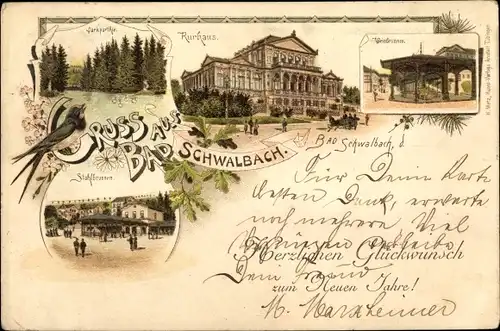 Parkparthie.
Kurhaus.
Weinbrunnen.
GRUSS AUS
BAD
SCHWALBACH.
Bad Schwalbach, d.
Stahlbrunnen
Für Deine Karte
besten Dank, erwarte
noch mehrere Viel
Herzlichen Glückwunsch
Dein Freund
zum Neuen Jahre!
M. Marxheimer